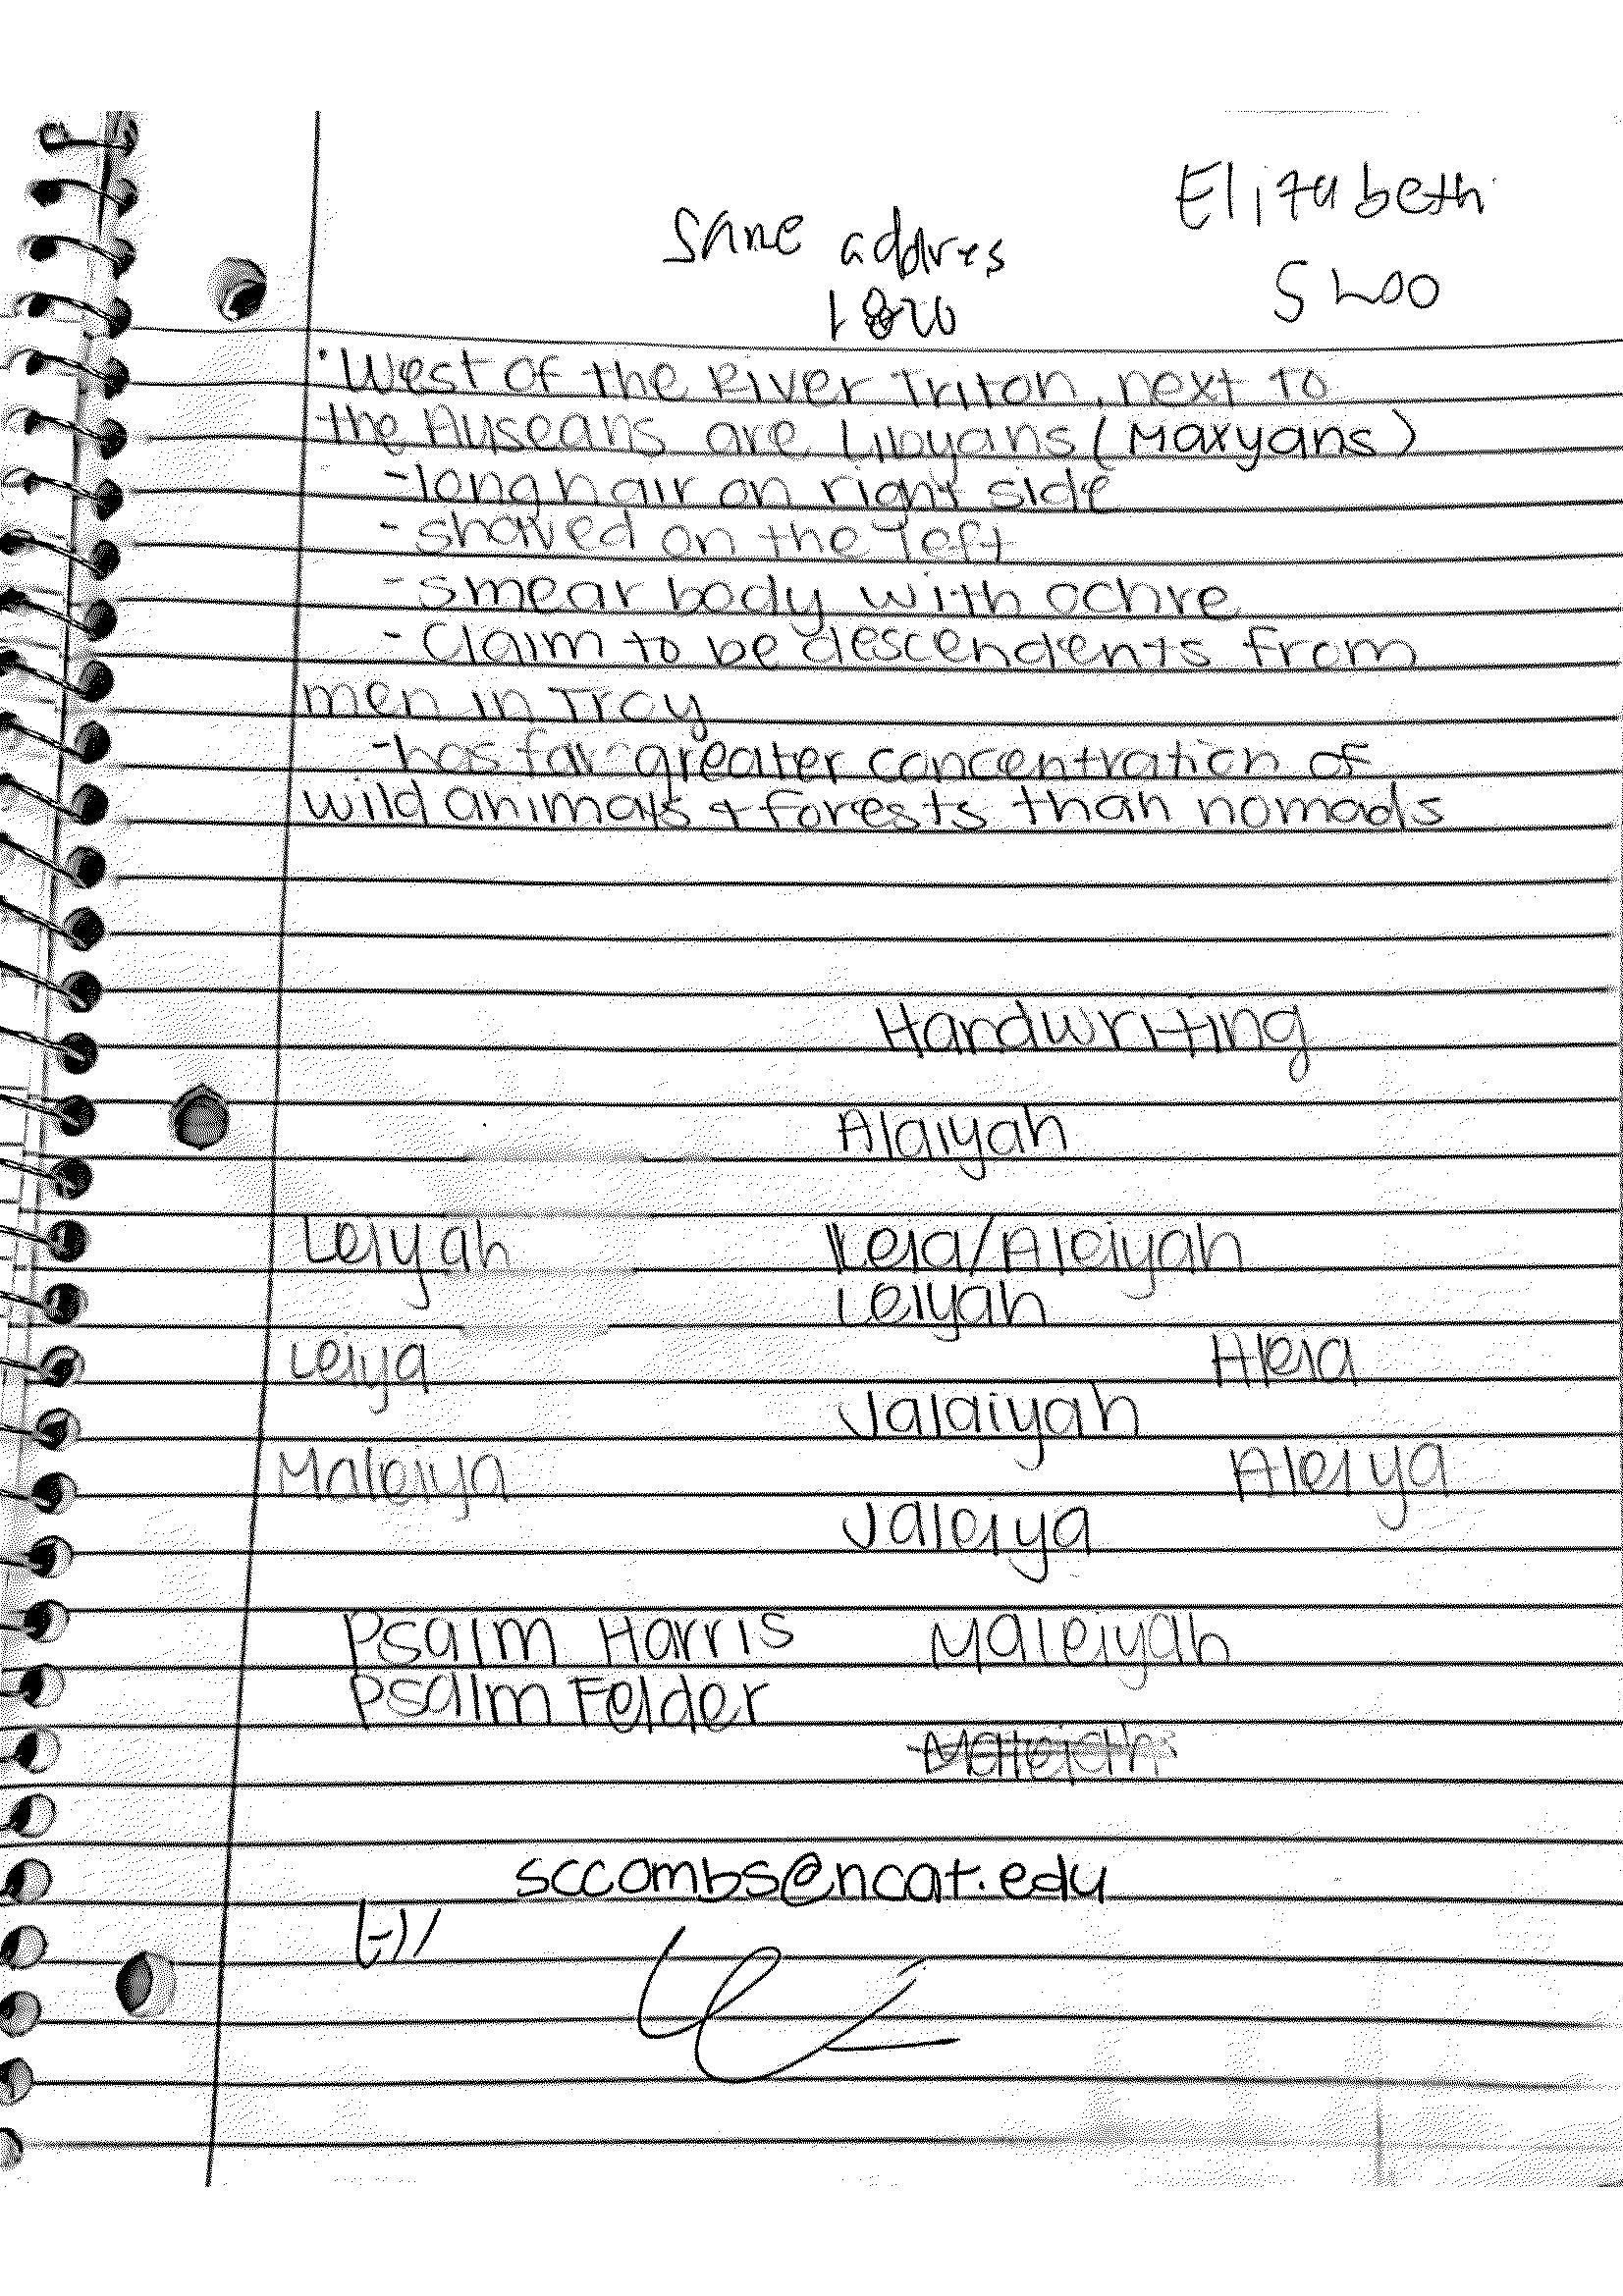 Elizabeth
Same addres
5200
1820
· West of the River Triton, next to
the Auseans are Libyans (Maxyans)
- long hair on right side
- shaved on the left
- smear body with ochre
- Claim to be descendents from
men in Troy
- has far greater concentration of
wild animals & forests than nomads
Handwriting
Alaiyah
Leiyah Leia/Aleiyah
Leiyah
Leiya Aleia
Jalaiyah
Maleiya Aleiya
Jaleiya
Psalm Harris Maleiyah
Psalm Felder
sccombs@ncat.edu